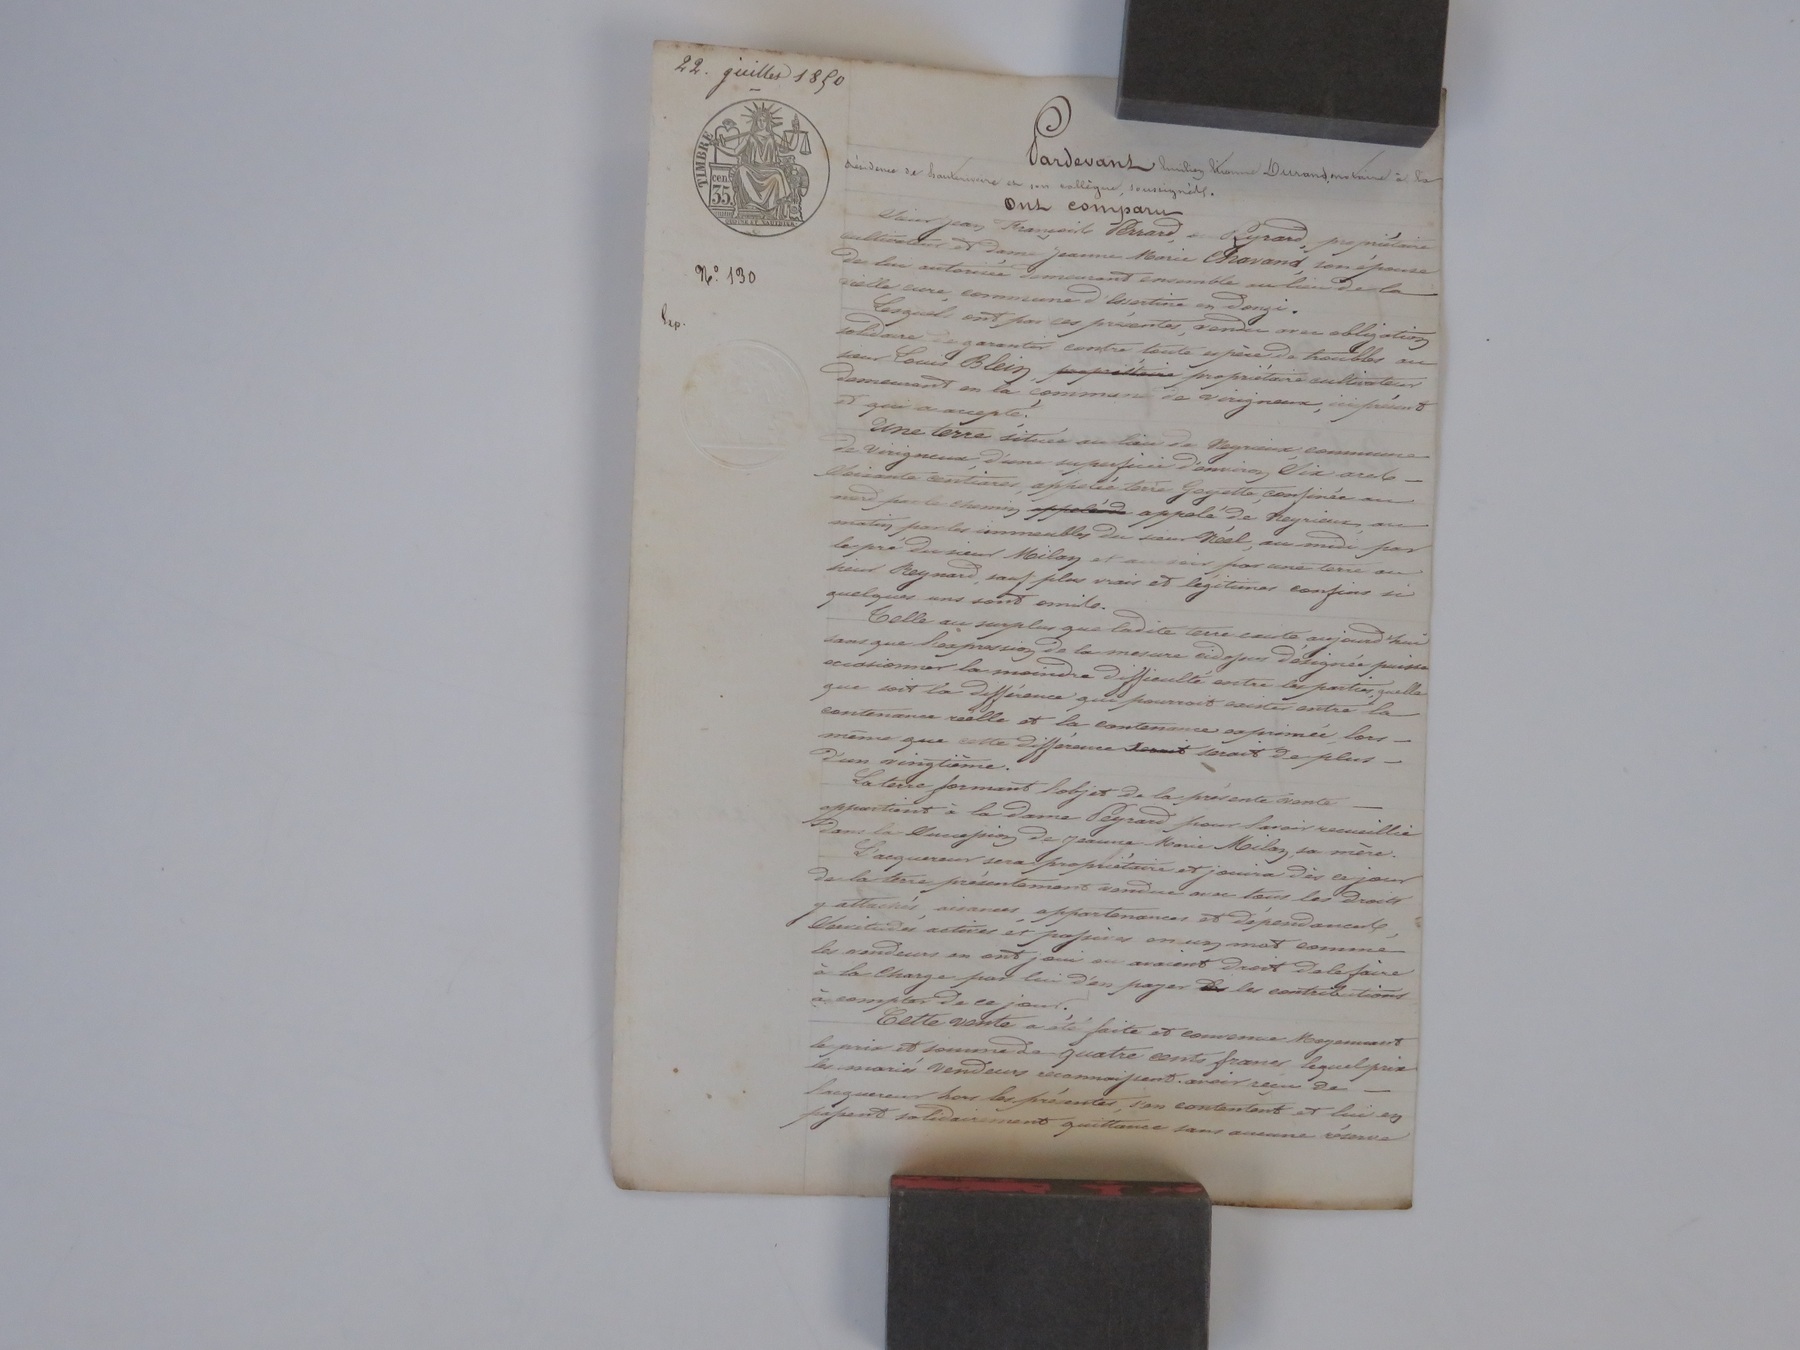 22. juillet 1850
TIMBRE
35 cen
N.° 130
Exp.
Pardevant Emilien Etienne Durand, notaire à la
résidence de hauterivoire et son collègue, soussignés.
Ont comparu
Sieur jean François Perrard, Peyrard, propriétaire
cultivateur et dame jeanne Marie Chavand, son épouse
de lui autorisée demeurant ensemble au lieu de la
vielle cure commune d'essertine en donzi.
Lesquels ont, par ces présentes, vendu avec obligation
solidaire de garantir contre toute espèce de troubles au
sieur Louis Blein, propriétaire propriétaire cultivateur
demeurant en la commune de virigneux, ici présent
et qui a accepté.
Une terre située au lieu de Neyrieux commune
de Virigneux d'une superficie d'environ Six ares
Soixante centiares, appelée terre Goyette, confinée au
nord par le chemin appelé de appelé de Neyrieux, au
matin par les immeubles du sieur Réal, au midi par
le pré du sieur Milan et au soir par une terre au
sieur Reynard, sauf plus vrais et légitimes confins si
quelques uns sont omis.
Telle au surplus que ladite terre existe aujourd'hui
sans que l'expression de la mesure cidessus désignée puisse
occasionner la moindre difficulté entre les parties, quelle
que soit la différence qui pourroit exister entre la
contenance réelle et la contenance exprimée, lors
même que cette différence seroit seroit de plus
d'un vingtième.
La terre formant l'objet de la présente vente
appartient à la dame Peyrard pour l'avoir recueillie
dans la Succession de jeanne Marie Milan, sa mère.
L'acquereur sera propriétaire et jouira dès ce jour
de la terre présentement vendue avec tous les droits
y attachés, aisances, appartenances et dépendances,
Servitudes actives et passives en un mot comme
les vendeurs en ont joui ou avaient droit de le faire
à la charge par lui d'en payer les contributions
à compter de ce jour.
Cette vente a été faite et convenue Moyennant
le prix et somme de quatre cents francs lequel prix
les mariés vendeurs reconnaissent avoir reçu de
l'acquereur hors les présentes, s'en contentent et lui en
passent solidairement quittance sans aucune réserve